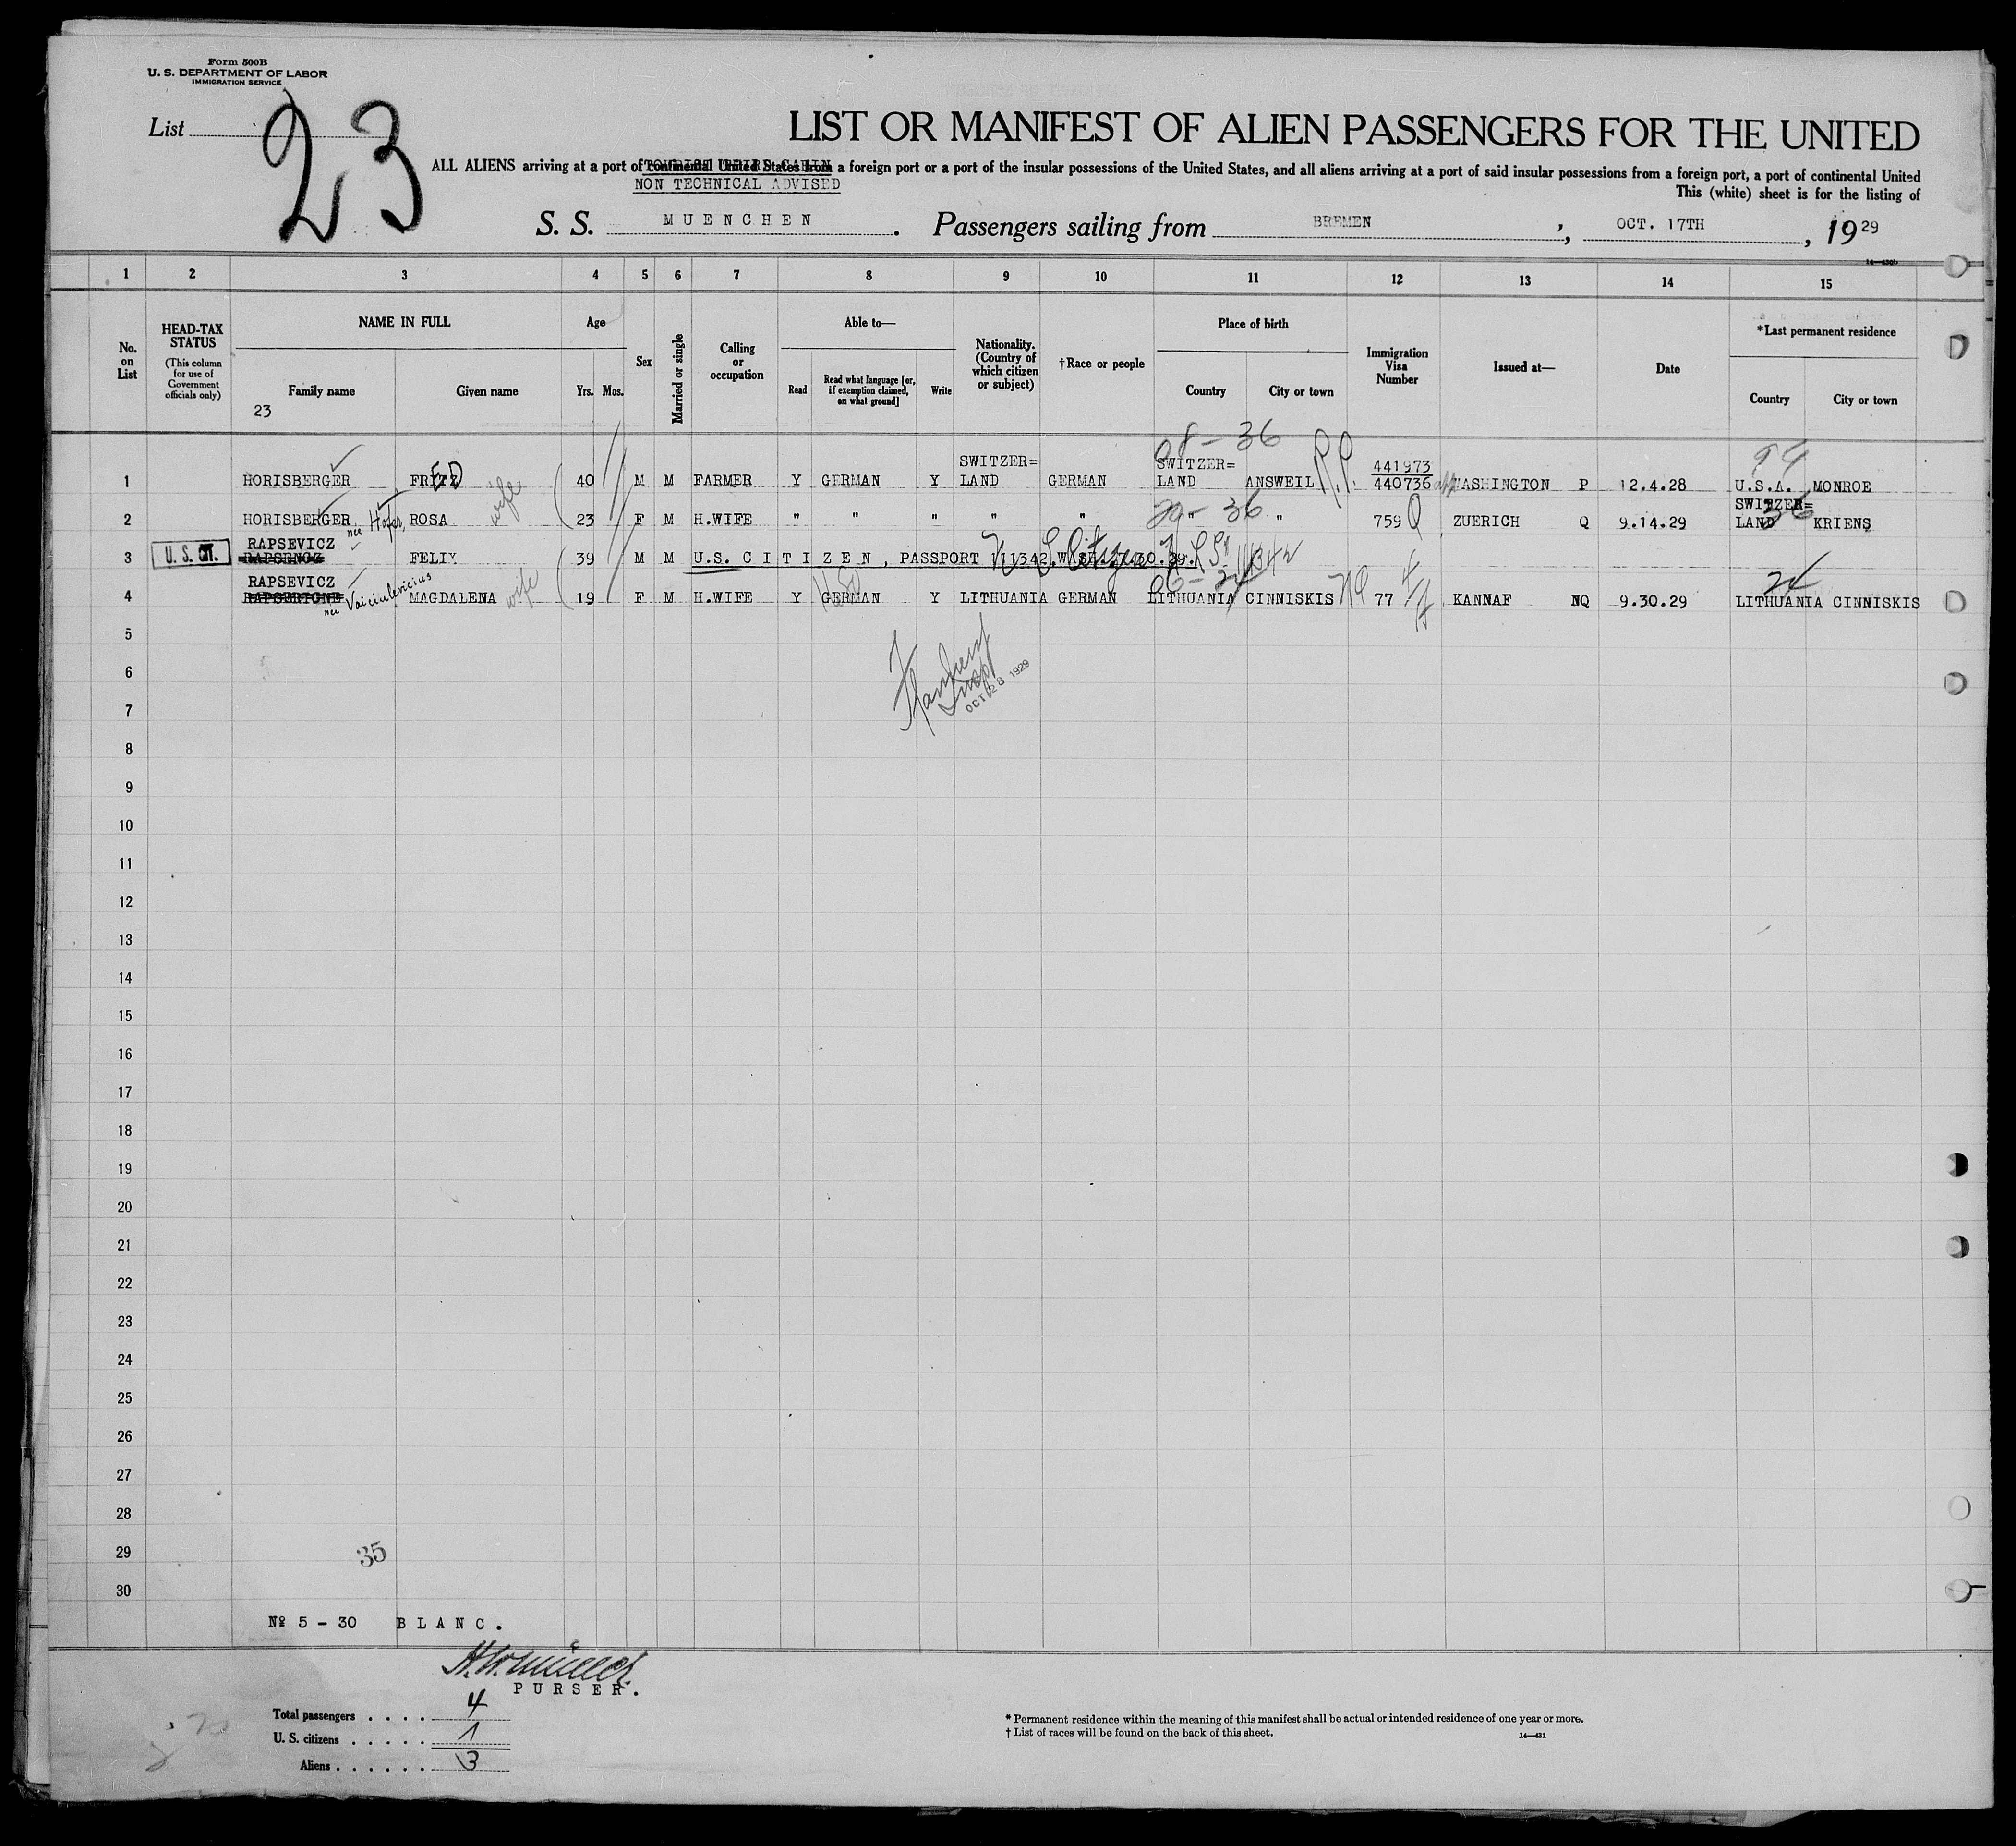 Form 500B
U. S. DEPARTMENT OF LABOR
IMMIGRATION SERVICE
List 23
LIST OR MANIFEST OF ALIEN PASSENGERS FOR THE UNITED
ALL ALIENS arriving at a port of continental United States from a foreign port or a port of the insular possessions of the United States, and all aliens arriving at a port of said insular possessions from a foreign port, a port of continental United
TOURIST THIRD CABIN
NON TECHNICAL ADVISED
This (white) sheet is for the listing of
S. S. MUENCHEN. Passengers sailing from BREMEN, OCT. 17TH, 1929
1 2 3 4 5 6 7 8 9 10 11 12 13 14 15
No. on List
HEAD-TAX STATUS
(This column for use of Government officials only)
NAME IN FULL
Family name
Given name
23
Age
Yrs. Mos.
Sex
Married or single
Calling or occupation
Able to—
Read
Read what language [or, if exemption claimed, on what ground]
Write
Nationality. (Country of which citizen or subject)
†Race or people
Place of birth
Country
City or town
Immigration Visa Number
Issued at—
Date
*Last permanent residence
Country
City or town
08-36
99
1 HORISBERGER FRED wife 40 M M FARMER Y GERMAN Y SWITZER=LAND GERMAN SWITZER=LAND ANSWEIL P.P. 441973 440736 WASHINGTON P 12.4.28 U.S.A. MONROE
2 HORISBERGER née Hofer, ROSA 23 F M H.WIFE " " " " " " 29-36 " 759 Q ZUERICH Q 9.14.29 SWITZER=LAND 36 KRIENS
3 U. S. CIT. RAPSEVICZ FELIX 39 M M U.S. CITIZEN, PASSPORT 111342
06-24
24
4 RAPSEVICZ née Vaiciulevicius MAGDALENA wife 19 F M H.WIFE Y GERMAN Y LITHUANIA GERMAN LITHUANIA CINNISKIS NQ 77 KANNAF NQ 9.30.29 LITHUANIA CINNISKIS
5
6
OCT 28 1929
7
8
9
10
11
12
13
14
15
16
17
18
19
20
21
22
23
24
25
26
27
28
29
35
30
Nº 5 - 30 BLANC.
PURSER.
Total passengers . . . . 4
U. S. citizens . . . . . 1
Aliens . . . . . . 3
* Permanent residence within the meaning of this manifest shall be actual or intended residence of one year or more.
† List of races will be found on the back of this sheet.
14—431